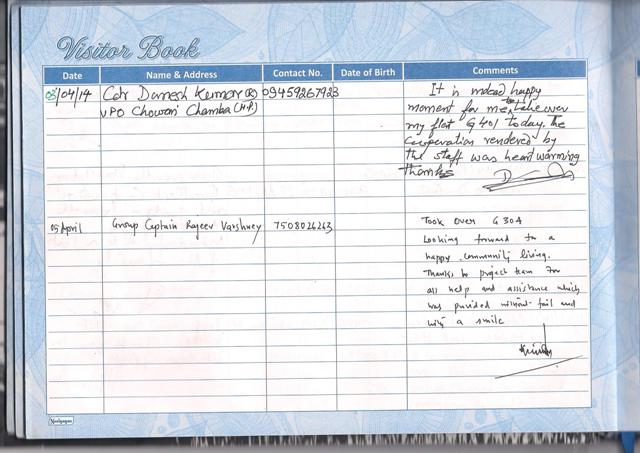 Visitor Book
Date Name & Address Contact No. Date of Birth Comments
03/04/14 Cdr Damesh Kumar (R) 09459267923
VPO Chowari Chamba (H.P.)
It is indeed happy
moment for me to take over
my flat G 401 today. The
cooperation rendered by
the staff was heart warming
thanks
05 April Group Captain Rajeev Varshney 7508026263
Took over G 304
Looking forward to a
happy community living.
Thanks to project team for
all help and assistance which
was provided without fail and
with a smile
Neelgagan